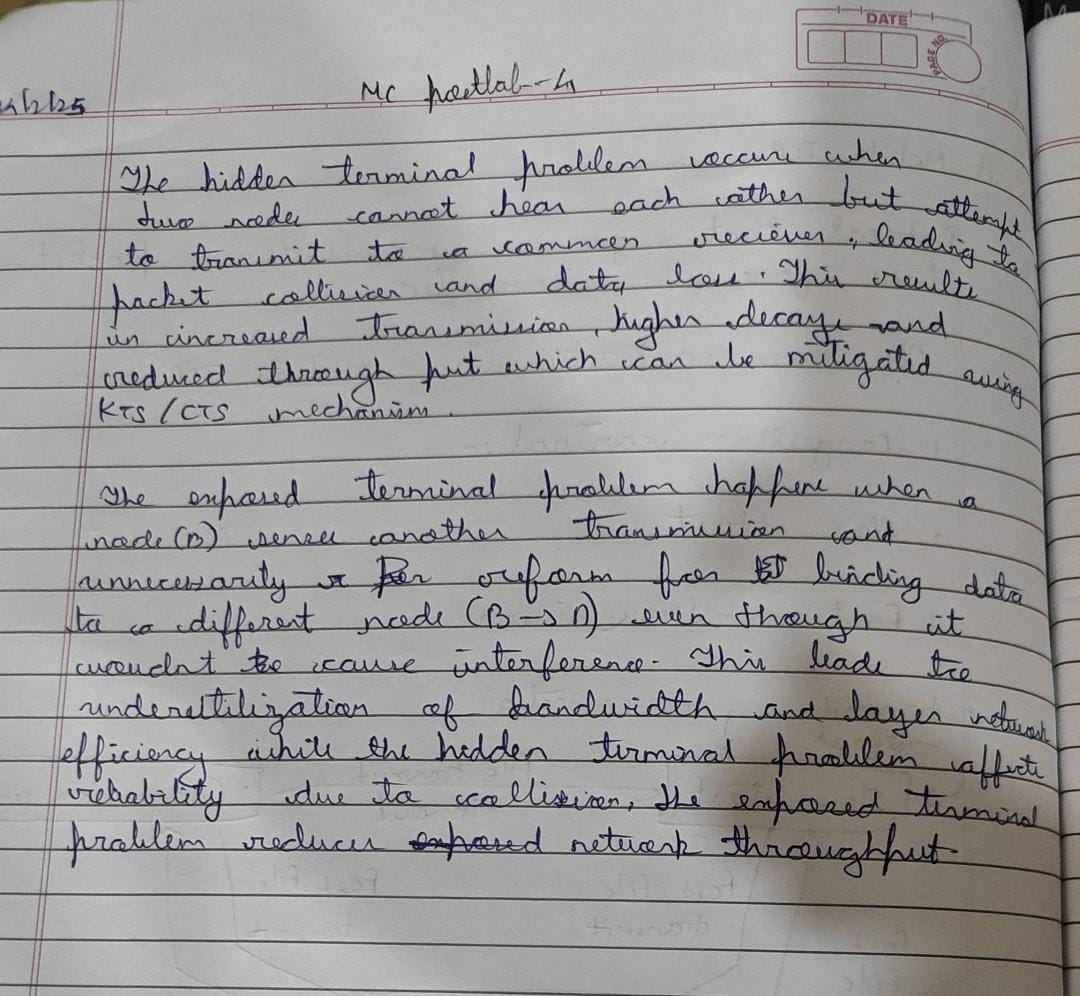 DATE
PAGE NO.
4/2/25
MC postlab-4
The hidden terminal problem occurs when
two nodes cannot hear each other but attempt
to transmit to a common reciever, leading to
packet collision and data loss. This results
in increased transmission, higher decays and
reduced through put which can be mitigated using
RTS/CTS mechanism.
The exposed terminal problem happens when a
node (B) senses another transmission and
unnecessarily from data
to a different node (B → D) even though it
wouldnt cause interference. This leads to
underutilization of bandwidth and layer network
efficiency while the hidden terminal problem affects
reliability due to collision, the exposed terminal
problem reduces exposed network throughput